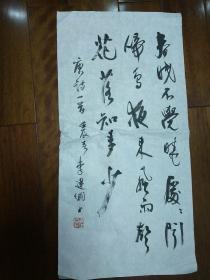 春眠不覺曉處處聞
啼鳥夜來風雨聲
花落知多少
唐詩一首 李建